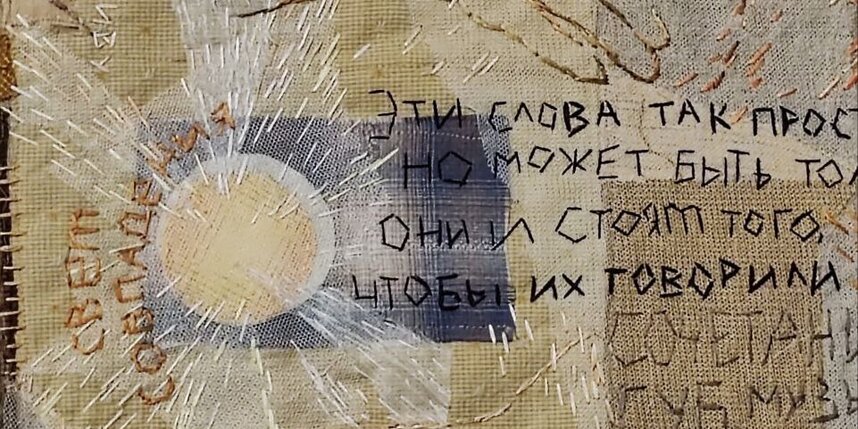 СВЕТ
СОВПАДЕНИЯ
ЭТИ СЛОВА ТАК ПРОСТ
НО МОЖЕТ БЫТЬ ТОЛ
ОНИ И СТОЯТ ТОГО,
ЧТОБЫ ИХ ГОВОРИЛИ
СОЧЕТАНИ
ГУБ МУЗЫ